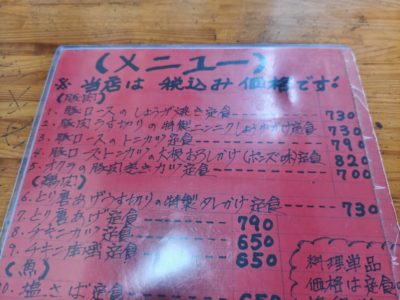 (メニュー)
※ 当店は 税込み 価格です!
(豚肉)
1. 豚ロースのしょうが焼き定食 730
2. 豚肉うす切りの特製ニンニクしょうゆかけ定食 730
3. 豚ロースのトンカツ定食 790
4. 豚ローストンカツの大根おろしかけ(ポンズ味)定食 820
5. オクラの豚肉巻きカツ定食 700
(鶏肉)
6. とり唐あげうす切りの特製タレかけ定食 730
7. とり唐あげ定食 790
8. チキンカツ定食 650
9. チキン南蛮定食 650
(魚)
10. 塩さば定食
料理単品
価格は定食